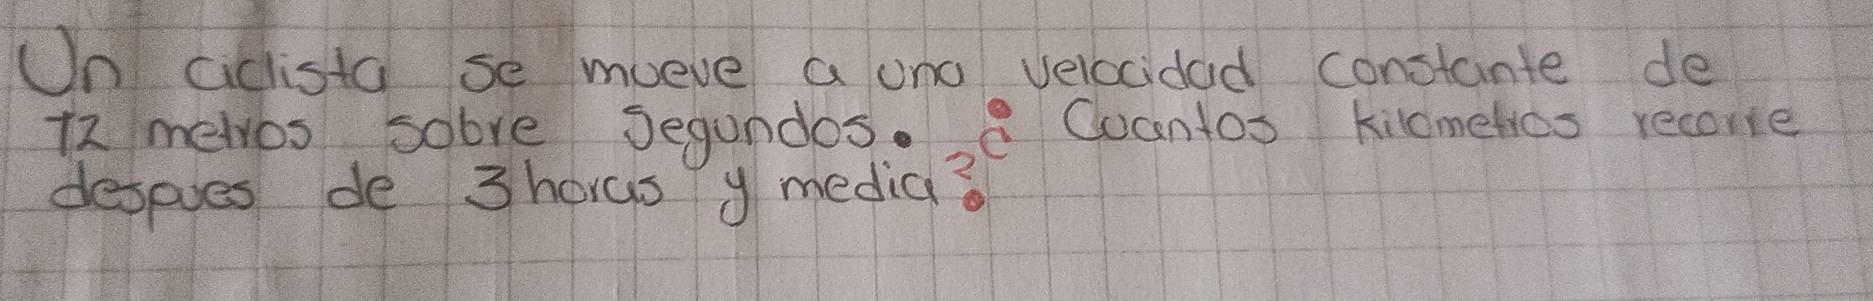 Un ciclista se mueve a una velocidad constante de
12 metros sobre segundos. ¿Cuantos kilometros recorre
despues de 3 horas y media?